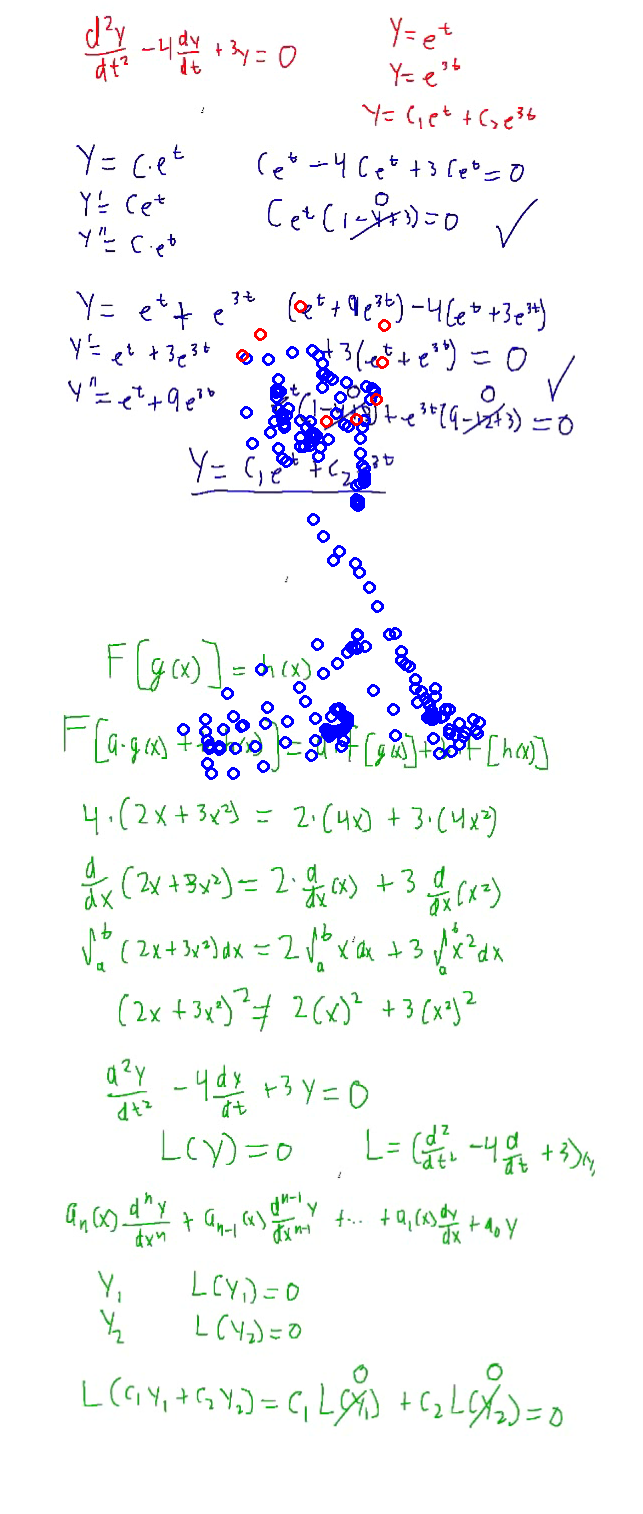 d²y/dt² - 4 dy/dt + 3y = 0
y = e^t
y = e^3t
y = C₁e^t + C₂e^3t
y = C·e^t
y' = Ce^t
y'' = C·e^t
Ce^t - 4Ce^t + 3Ce^t = 0
Ce^t(1-4+3) = 0 ✓
0
y = e^t + e^3t
y' = e^t + 3e^3t
y'' = e^t + 9e^3t
(e^t + 9e^3t) - 4(e^t + 3e^3t)
+3(e^t + e^3t) = 0 ✓
(1-4+3) + e^3t(9-12+3) = 0
0
y = C₁e^t + C₂ 3t
F[g(x)] = h(x)
F[a·g(x) + h(x)] = F[g(x)] + F[h(x)]
4·(2x+3x²) = 2·(4x) + 3·(4x²)
d/dx (2x+3x²) = 2·d/dx(x) + 3 d/dx(x²)
∫_a^b (2x+3x²)dx = 2∫_a^b x dx + 3∫_a^b x²dx
(2x+3x²)² ≠ 2(x)² + 3(x²)²
d²y/dt² - 4 dy/dt + 3y = 0
L(y) = 0 L = (d²/dt² - 4 d/dt + 3)(y)
aₙ(x) dⁿy/dxⁿ + aₙ₋₁(x) dⁿ⁻¹y/dxⁿ⁻¹ + ... + a₁(x) dy/dx + a₀y
y₁ L(y₁) = 0
y₂ L(y₂) = 0
0 0
L(C₁y₁ + C₂y₂) = C₁L(y₁) + C₂L(y₂) = 0